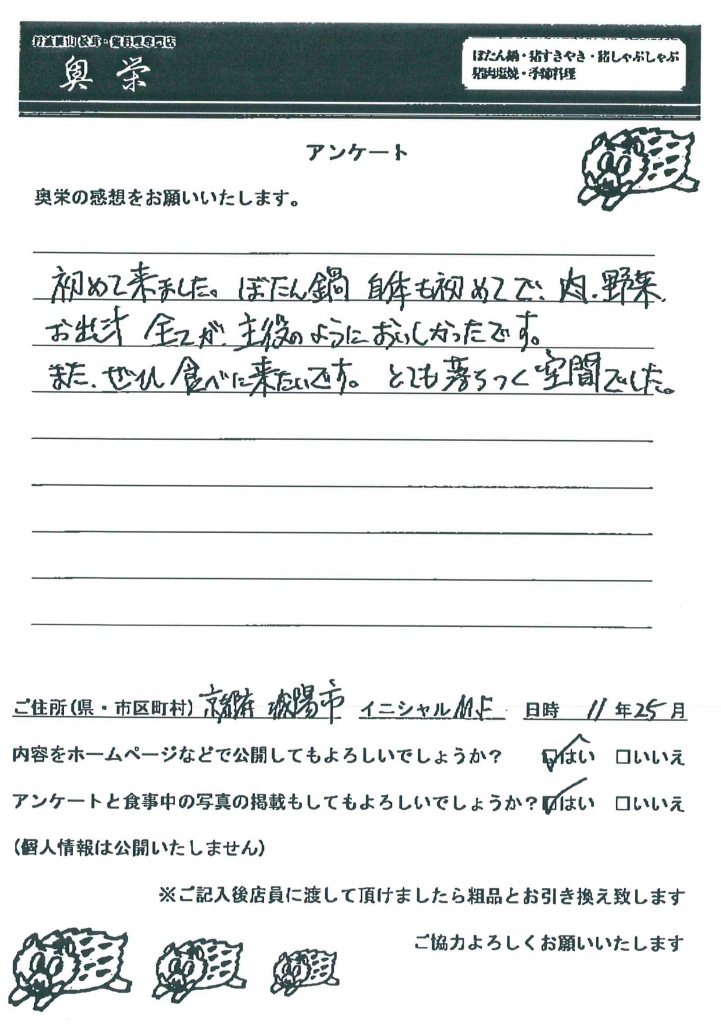 丹波篠山 松茸・猪料理専門店
奥栄
ぼたん鍋・猪すきやき・猪しゃぶしゃぶ
猪肉塩焼・季節料理
アンケート
奥栄の感想をお願いいたします。
初めて来ました。ぼたん鍋 自体も初めてで、肉、野菜、
お出汁 全てが、主役のように おいしかったです。
また、ぜひ 食べに来たいです。 とても落ちつく空間でした。
ご住所(県・市区町村) 京都府 城陽市 イニシャル M.F 日時 11 年 25 月
内容をホームページなどで公開してもよろしいでしょうか? ☑はい □いいえ
アンケートと食事中の写真の掲載もしてもよろしいでしょうか?☑はい □いいえ
(個人情報は公開いたしません)
※ご記入後店員に渡して頂けましたら粗品とお引き換え致します
ご協力よろしくお願いいたします